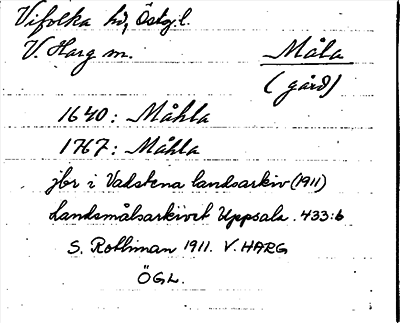 Vifolka hd, Östg.l.
V. Harg sn.
Måla
(gård)
1640: Måhla
1767: Måhla
jbr i Vadstena landsarkiv (1911)
Landsmålsarkivet Uppsala. 433:b
S. Rothman 1911. V. HARG
ÖGL.